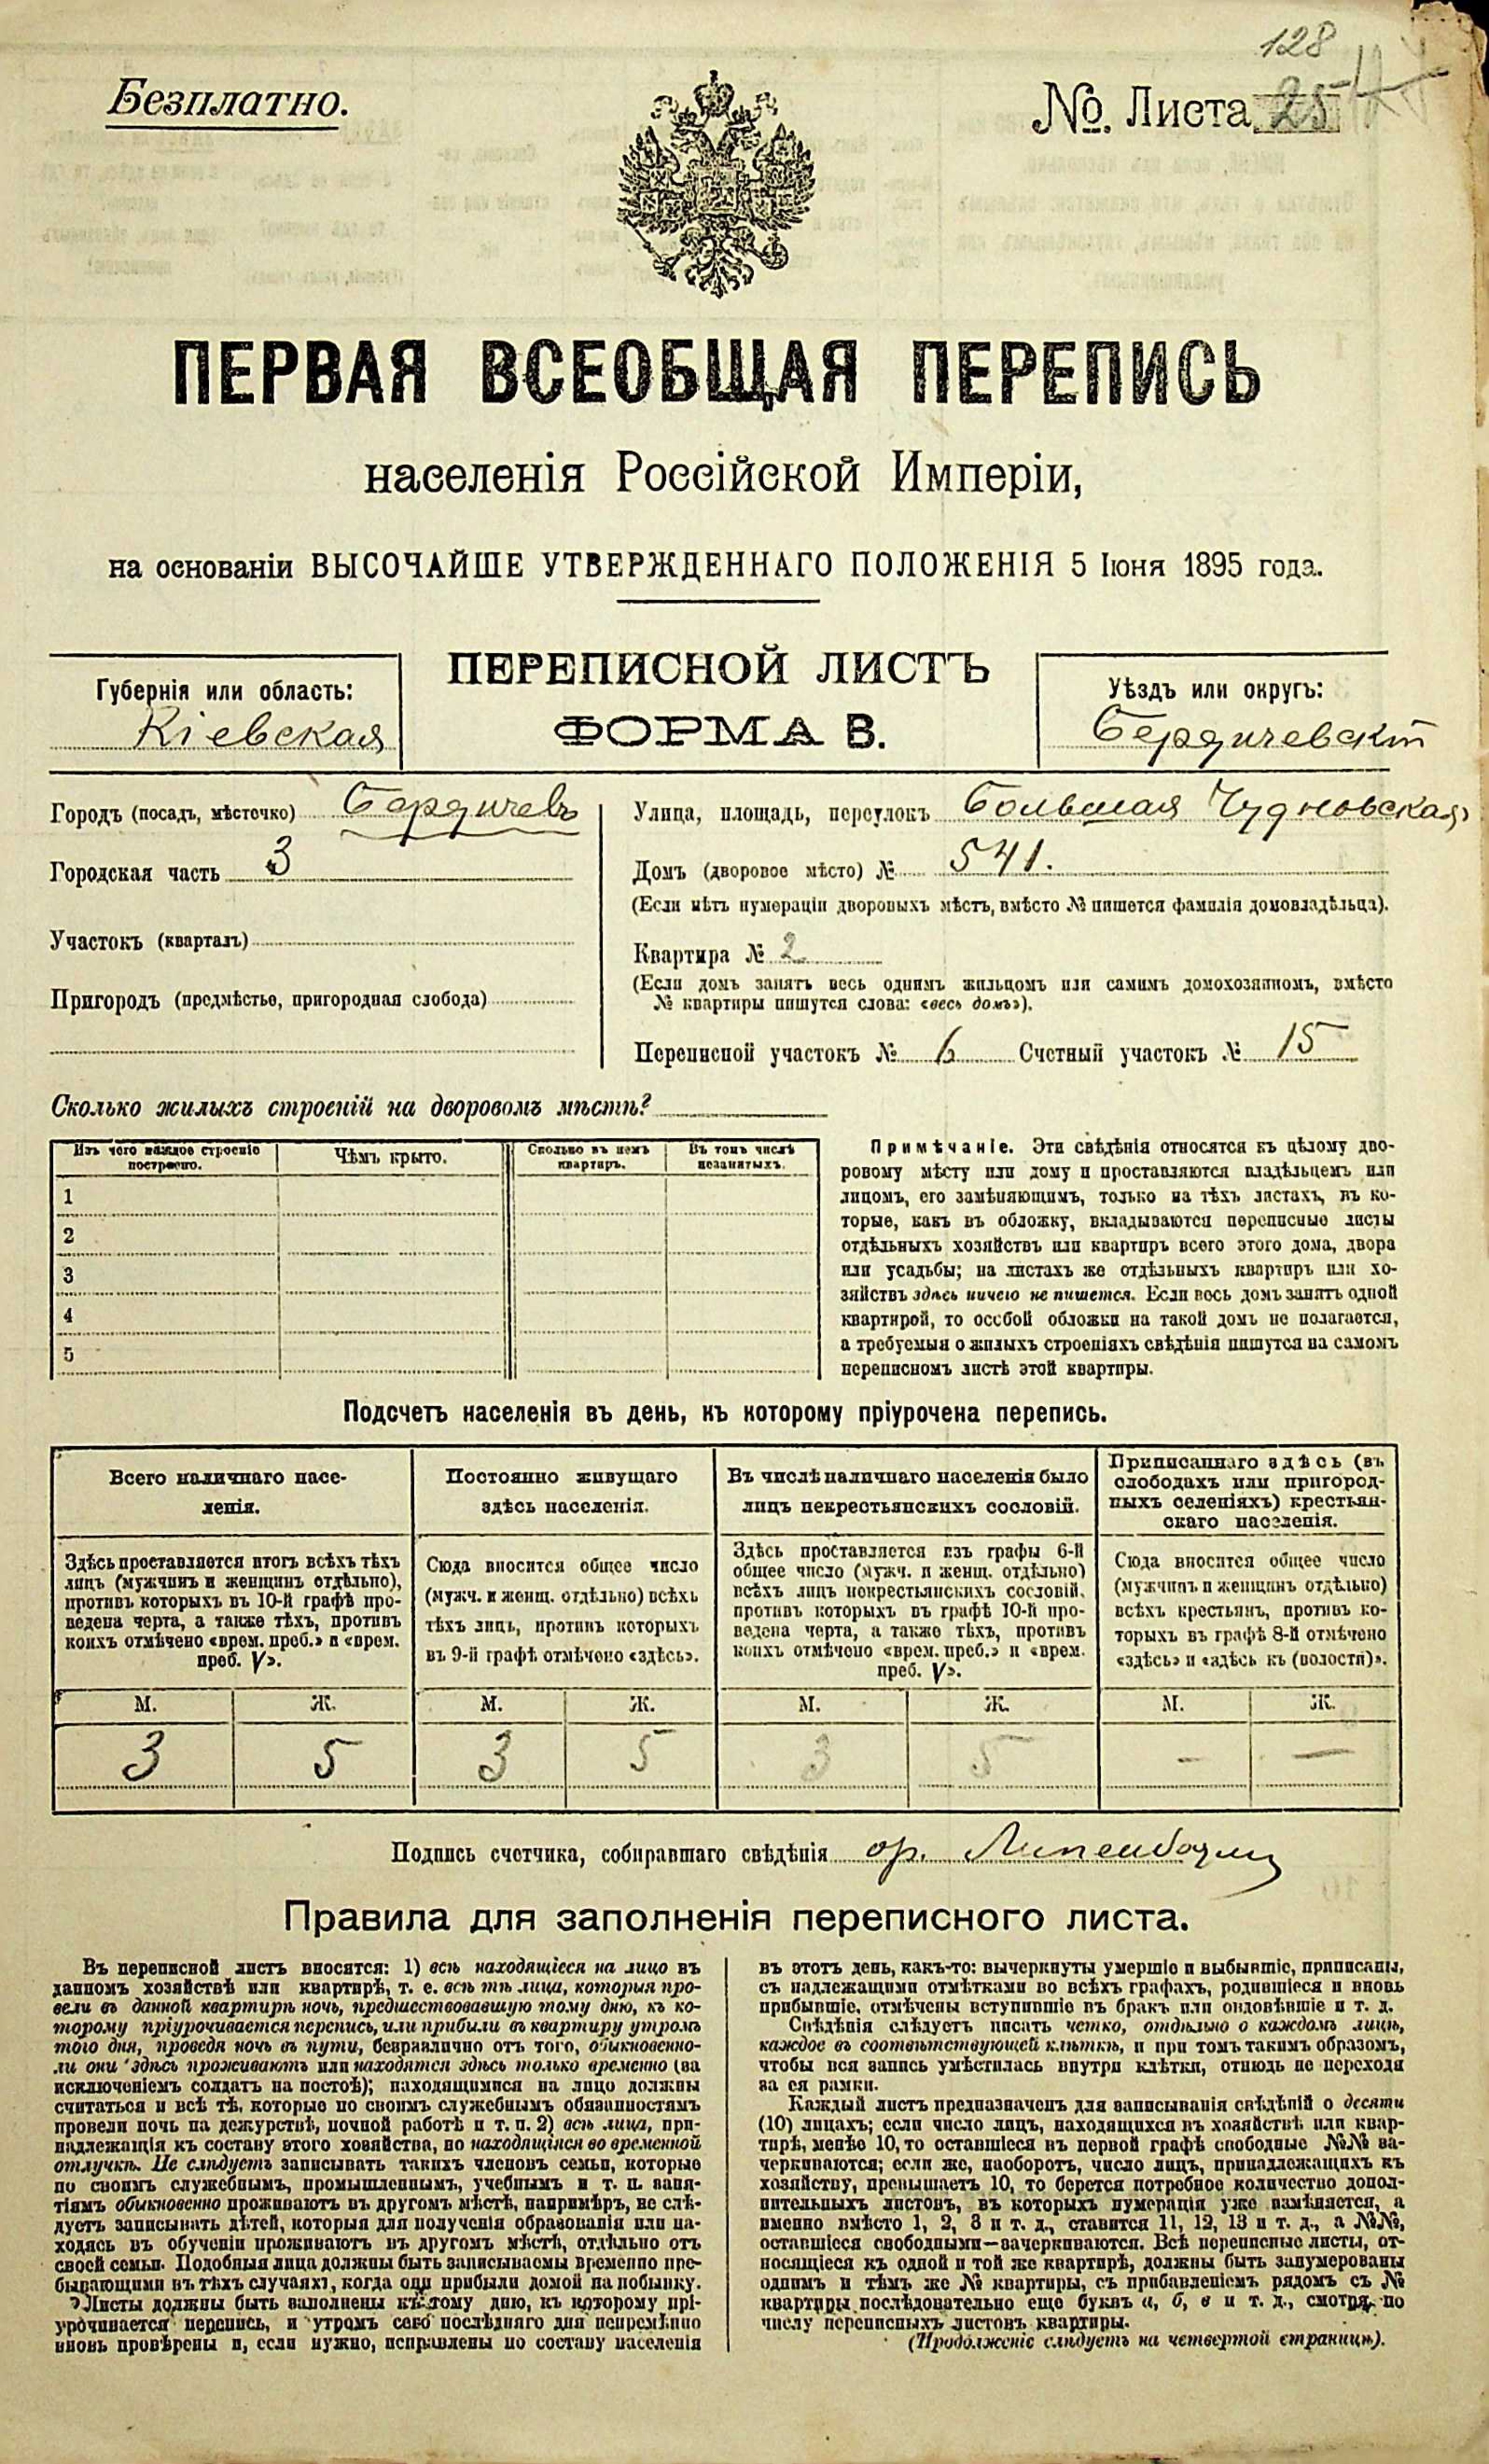 128
Безплатно.
№. Листа 25
ПЕРВАЯ ВСЕОБЩАЯ ПЕРЕПИСЬ
населенія Россійской Имперіи,
на основаніи ВЫСОЧАЙШЕ УТВЕРЖДЕННАГО ПОЛОЖЕНІЯ 5 Іюня 1895 года.
ПЕРЕПИСНОЙ ЛИСТЪ
ФОРМА В.
Губернія или область:
Кіевская
Уѣздъ или округъ:
Бердичевскій
Городъ (посадъ, мѣстечко) Бердичевъ
Городская часть 3
Участокъ (кварталъ)
Пригородъ (предмѣстье, пригородная слобода)
Улица, площадь, переулокъ Большая Чудновская
Домъ (дворовое мѣсто) № 541.
(Если нѣтъ нумераціи дворовыхъ мѣстъ, вмѣсто № пишется фамилія домовладѣльца).
Квартира № 2
(Если домъ занятъ весь однимъ жильцомъ или самимъ домохозяиномъ, вмѣсто
№ квартиры пишутся слова: «весь домъ»).
Переписной участокъ № 6 Счетный участокъ № 15
Сколько жилыхъ строеній на дворовомъ мѣстѣ?
Изъ чего каждое строеніе построено.
Чѣмъ крыто.
Сколько въ немъ квартиръ.
Въ томъ числѣ незанятыхъ.
1
2
3
4
5
Примѣчаніе. Эти свѣдѣнія относятся къ цѣлому дво-
ровому мѣсту или дому и проставляются владѣльцемъ или
лицомъ, его замѣняющимъ, только на тѣхъ листахъ, въ ко-
торые, какъ въ обложку, вкладываются переписные листы
отдѣльныхъ хозяйствъ или квартиръ всего этого дома, двора
или усадьбы; на листахъ же отдѣльныхъ квартиръ или хо-
зяйствъ здѣсь ничего не пишется. Если весь домъ занятъ одной
квартирой, то особой обложки на такой домъ не полагается,
а требуемыя о жилыхъ строеніяхъ свѣдѣнія пишутся на самомъ
переписномъ листѣ этой квартиры.
Подсчетъ населенія въ день, къ которому пріурочена перепись.
Всего наличнаго насе-
ленія.
Здѣсь проставляется итогъ всѣхъ тѣхъ
лицъ (мужчинъ и женщинъ отдѣльно),
противъ которыхъ въ 10-й графѣ про-
ведена черта, а также тѣхъ, противъ
коихъ отмѣчено «врем. преб.» и «врем.
преб. V».
Постоянно живущаго
здѣсь населенія.
Сюда вносится общее число
(мужч. и женщ. отдѣльно) всѣхъ
тѣхъ лицъ, противъ которыхъ
въ 9-й графѣ отмѣчено «здѣсь».
Въ числѣ наличнаго населенія было
лицъ некрестьянскихъ сословій.
Здѣсь проставляется изъ графы 6-й
общее число (мужч. и женщ. отдѣльно)
всѣхъ лицъ некрестьянскихъ сословій,
противъ которыхъ въ графѣ 10-й про-
ведена черта, а также тѣхъ, противъ
коихъ отмѣчено «врем. преб.» и «врем.
преб. V».
Приписаннаго здѣсь (въ
слободахъ или пригород-
ныхъ селеніяхъ) крестьян-
скаго населенія.
Сюда вносится общее число
(мужчинъ и женщинъ отдѣльно)
всѣхъ крестьянъ, противъ ко-
торыхъ въ графѣ 8-й отмѣчено
«здѣсь» и «здѣсь къ (волости)».
М. Ж. М. Ж. М. Ж. М. Ж.
3 5 3 5 3 5 - —
Подпись счетчика, собиравшаго свѣдѣнія
Правила для заполненія переписного листа.
Въ переписной листъ вносятся: 1) всѣ находящіеся на лицо въ
данномъ хозяйствѣ или квартирѣ, т. е. всѣ тѣ лица, которыя про-
вели въ данной квартирѣ ночь, предшествовавшую тому дню, къ ко-
торому пріурочивается перепись, или прибыли въ квартиру утромъ
того дня, проведя ночь въ пути, безразлично отъ того, обыкновенно-
ли они здѣсь проживаютъ или находятся здѣсь только временно (за
исключеніемъ солдатъ на постоѣ); находящимися на лицо должны
считаться и всѣ тѣ, которые по своимъ служебнымъ обязанностямъ
провели ночь на дежурствѣ, ночной работѣ и т. п. 2) всѣ лица, при-
надлежащія къ составу этого хозяйства, но находящіяся во временной
отлучкѣ. Не слѣдуетъ записывать такихъ членовъ семьи, которые
по своимъ служебнымъ, промышленнымъ, учебнымъ и т. п. заня-
тіямъ обыкновенно проживаютъ въ другомъ мѣстѣ, напримѣръ, не слѣ-
дуетъ записывать дѣтей, которыя для полученія образованія или на-
ходясь въ обученіи проживаютъ въ другомъ мѣстѣ, отдѣльно отъ
своей семьи. Подобныя лица должны быть записываемы временно пре-
бывающими въ тѣхъ случаяхъ, когда они прибыли домой на побывку.
Листы должны быть заполнены къ тому дню, къ которому прі-
урочивается перепись, и утромъ сего послѣдняго дня непремѣнно
вновь провѣрены и, если нужно, исправлены по составу населенія
въ этотъ день, какъ-то: вычеркнуты умершіе и выбывшіе, приписаны,
съ надлежащими отмѣтками во всѣхъ графахъ, родившіеся и вновь
прибывшіе, отмѣчены вступившіе въ бракъ или овдовѣвшіе и т. д.
Свѣдѣнія слѣдуетъ писать четко, отдѣльно о каждомъ лицѣ,
каждое въ соотвѣтствующей клѣткѣ, и при томъ такимъ образомъ,
чтобы вся запись умѣстилась внутри клѣтки, отнюдь не переходя
за ея рамки.
Каждый листъ предназначенъ для записыванія свѣдѣній о десяти
(10) лицахъ; если число лицъ, находящихся въ хозяйствѣ или квар-
тирѣ, менѣе 10, то оставшіеся въ первой графѣ свободные №№ за-
черкиваются; если же, наоборотъ, число лицъ, принадлежащихъ къ
хозяйству, превышаетъ 10, то берется потребное количество допол-
нительныхъ листовъ, въ которыхъ нумерація уже измѣняется, а
именно вмѣсто 1, 2, 3 и т. д., ставится 11, 12, 13 и т. д., а №№,
оставшіеся свободными—зачеркиваются. Всѣ переписные листы, от-
носящіеся къ одной и той же квартирѣ, должны быть занумерованы
однимъ и тѣмъ же № квартиры, съ прибавленіемъ рядомъ съ №
квартиры послѣдовательно еще буквъ а, б, в и т. д., смотря по
числу переписныхъ листовъ квартиры.
(Продолженіе слѣдуетъ на четвертой страницѣ).